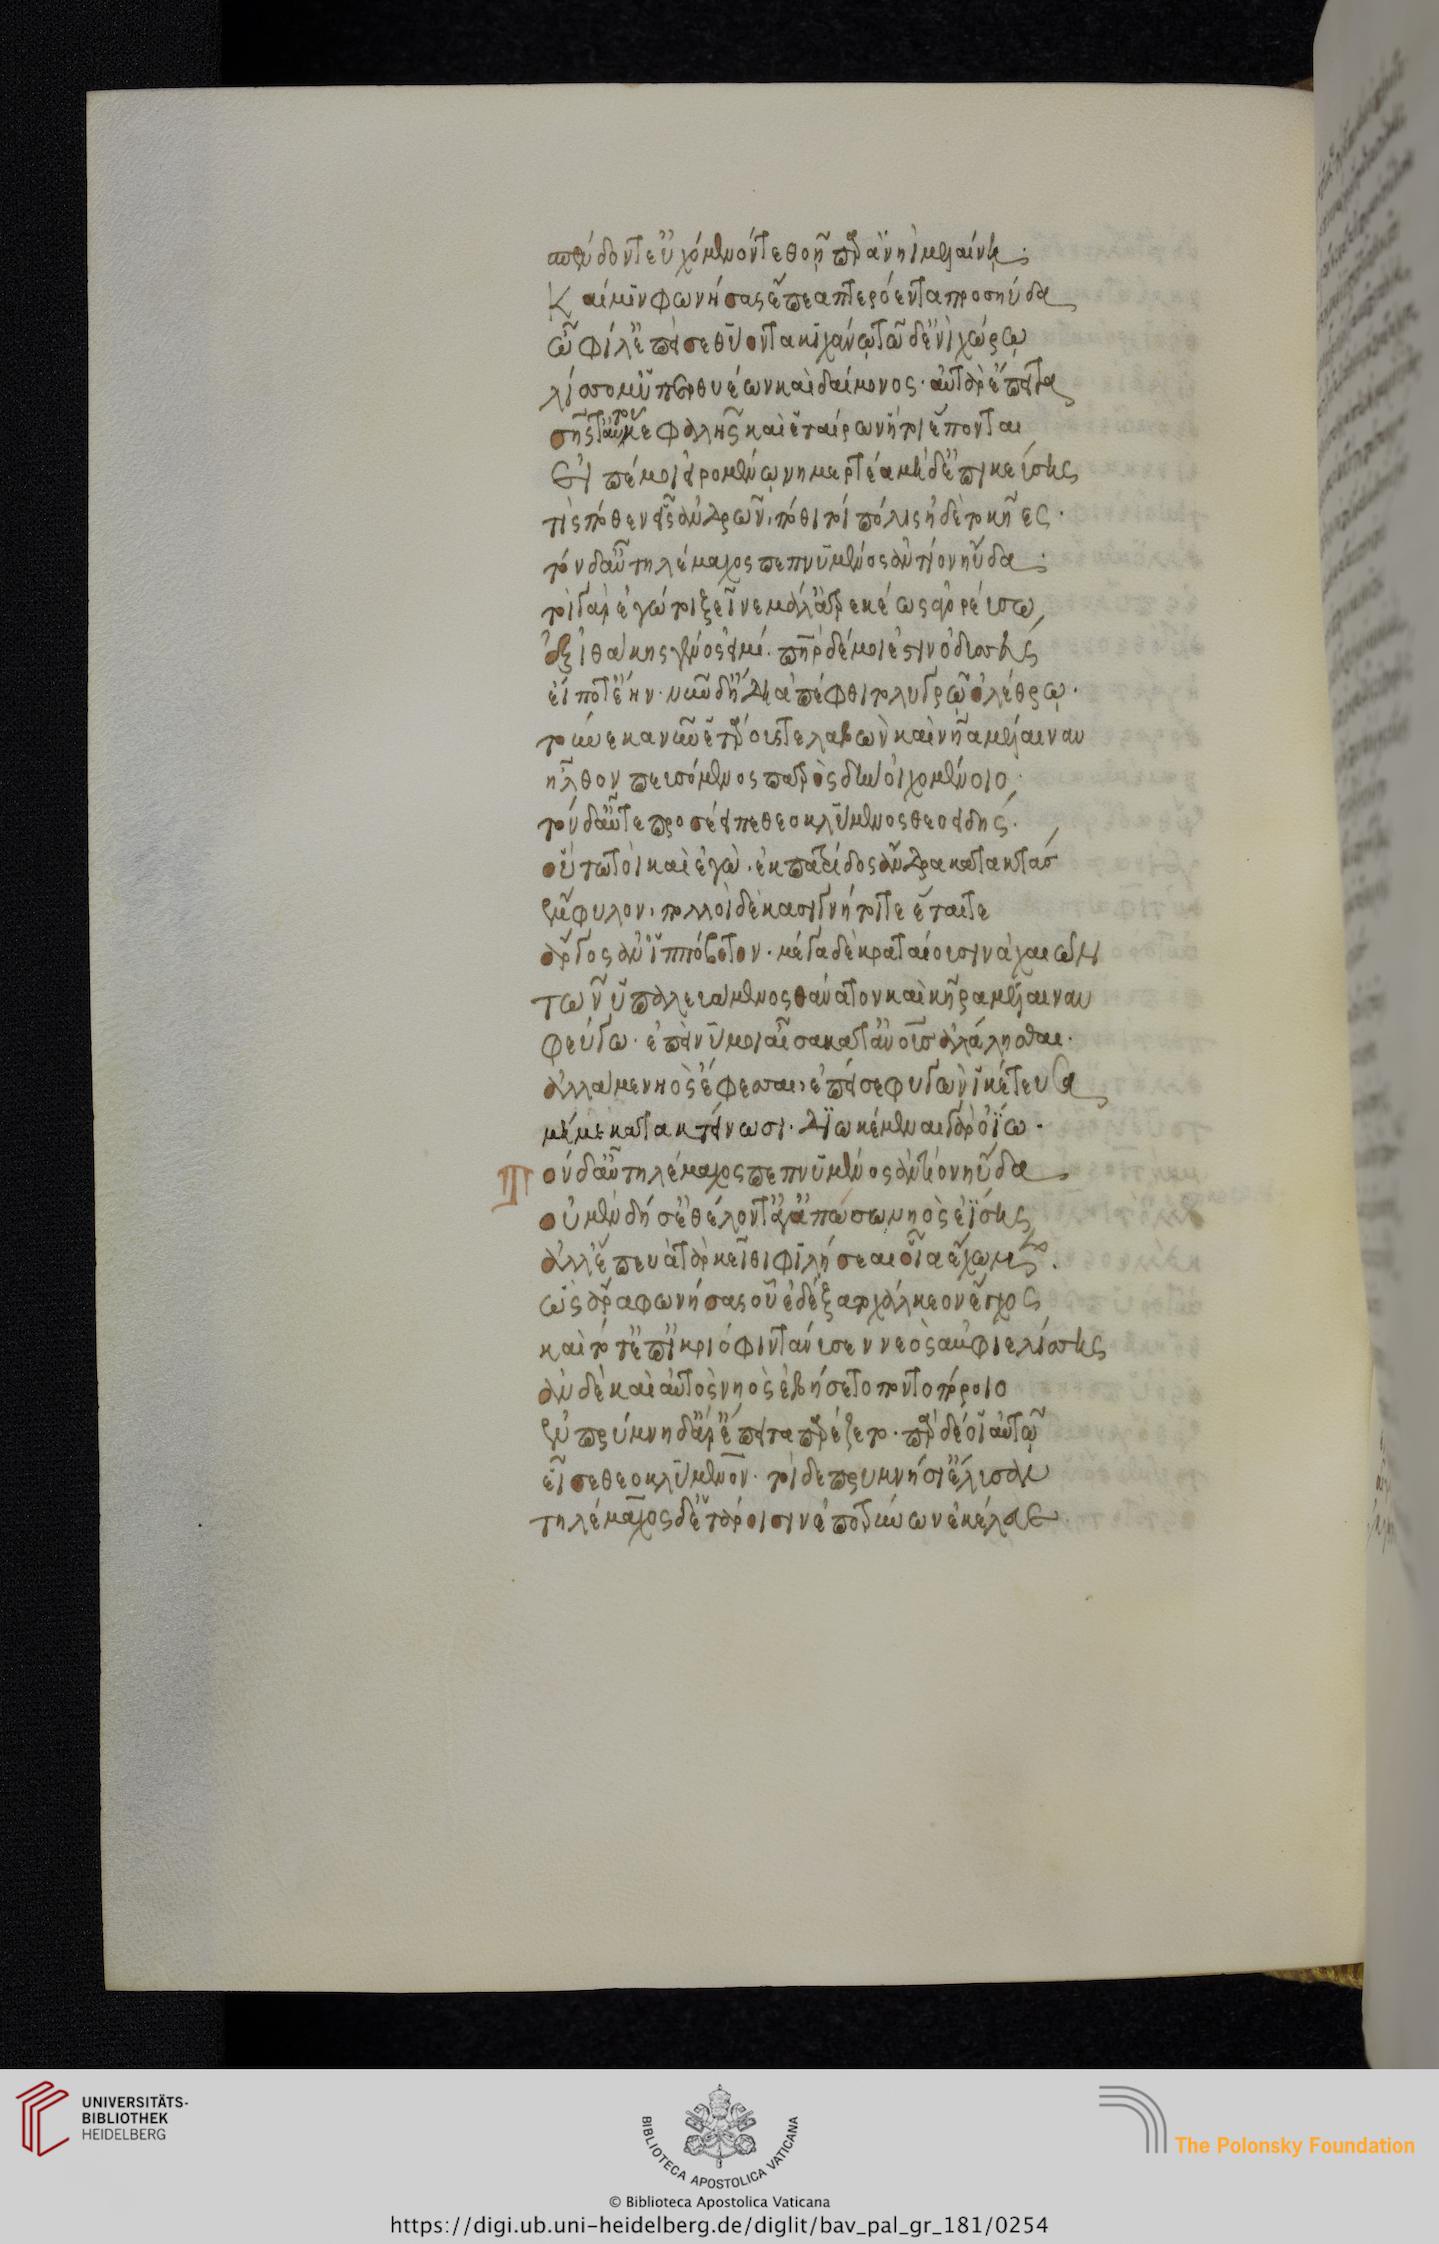 σπένδοντ' εὐχόμενόν τε θοῇ παρὰ νηῒ μελαίνῃ·
Καί μιν φωνήσας ἔπεα πτερόεντα προσηύδα
ὦ φίλ' ἐπεί σε θύοντα κιχάνω τῶδ' ἐνὶ χώρῳ
λίσσομ' ὑπὲρ θυέων καὶ δαίμονος· αὐτὰρ ἔπειτα
σῆς τ' αὐτοῦ κεφαλῆς καὶ ἑταίρων οἵ τοι ἕπονται
Εἰπέ μοι εἰρομένῳ νημερτέα μὴδ' ἐπικεύσῃς
τίς πόθεν εἶς ἀνδρῶν, πόθι τοι πόλις ἠδὲ τοκῆες·
τὸν δ' αὖ τηλέμαχος πεπνυμένος ἀντίον ηὔδα·
τοὶ γὰρ ἐγώ τοι ξεῖνε μάλ' ἀτρεκέως ἀγορεύσω
ἐξ ἰθάκης γένος εἰμί. πατὴρ δέ μοι ἐστὶν ὀδυσσεύς
εἴ ποτ' ἔην· νῦν δ' ἤδη ἀπέφθιτο λυγρῷ ὀλέθρῳ·
τοὔνεκα νῦν ἑτάρους τε λαβὼν καὶ νῆα μέλαιναν
ἦλθον πευσόμενος πατρὸς δὴν οἰχομένοιο·
τὸν δ' αὖτε προσέειπε θεοκλύμενος θεοειδής·
οὕτω τοι καὶ ἐγὼ· ἐκ πατρίδος ἄνδρα κατακτὰς
ἔμφυλον, πολλοὶ δὲ κασίγνητοί τε ἔται τε
ἄργος ἀν' ἱππόβοτον· μέγα δὲ κρατέουσιν ἀχαιῶν
τῶν ὑπαλευάμενος θάνατον καὶ κῆρα μέλαιναν
φεύγω· ἐπεί νύ μοι αἶσα κατ' ἀνθρώπους ἀλάλησθαι·
ἀλλά με νηὸς ἔφεσσαι, ἐπεί σε φυγὼν ἱκέτευσα
μή με κατακτείνωσι· διωκέμεναι γὰρ ὀΐω·
Τὸν δ' αὖ τηλέμαχος πεπνυμένος ἀντίον ηὔδα
οὐ μὲν δή σ' ἐθέλοντά γ' ἀπώσω νηὸς ἐΐσης
ἀλλ' ἕπευ αὐτὰρ κεῖθι φιλήσεαι οἷά κ' ἔχωμεν.
ὣς ἄρα φωνήσας οἱ ἐδέξατο χάλκεον ἔγχος
καὶ τό γ' ἐπ' ἰκριόφιν τάνυσεν νεὸς ἀμφιελίσσης
ἂν δὲ καὶ αὐτὸς νηὸς ἐβήσετο ποντοπόροιο
ἐν πρύμνῃ δ' ἄρ' ἔπειτα καθέζετο· παρ δέ οἷ αὐτῷ
εἷσε θεοκλύμενον· τοὶ δὲ πρυμνήσι' ἔλυσαν
τηλέμαχος δ' ἑτάροισιν ἐποτρύνων ἐκέλευσε
UNIVERSITÄTS-
BIBLIOTHEK
HEIDELBERG
BIBLIOTECA APOSTOLICA VATICANA
© Biblioteca Apostolica Vaticana
The Polonsky Foundation
https://digi.ub.uni-heidelberg.de/diglit/bav_pal_gr_181/0254